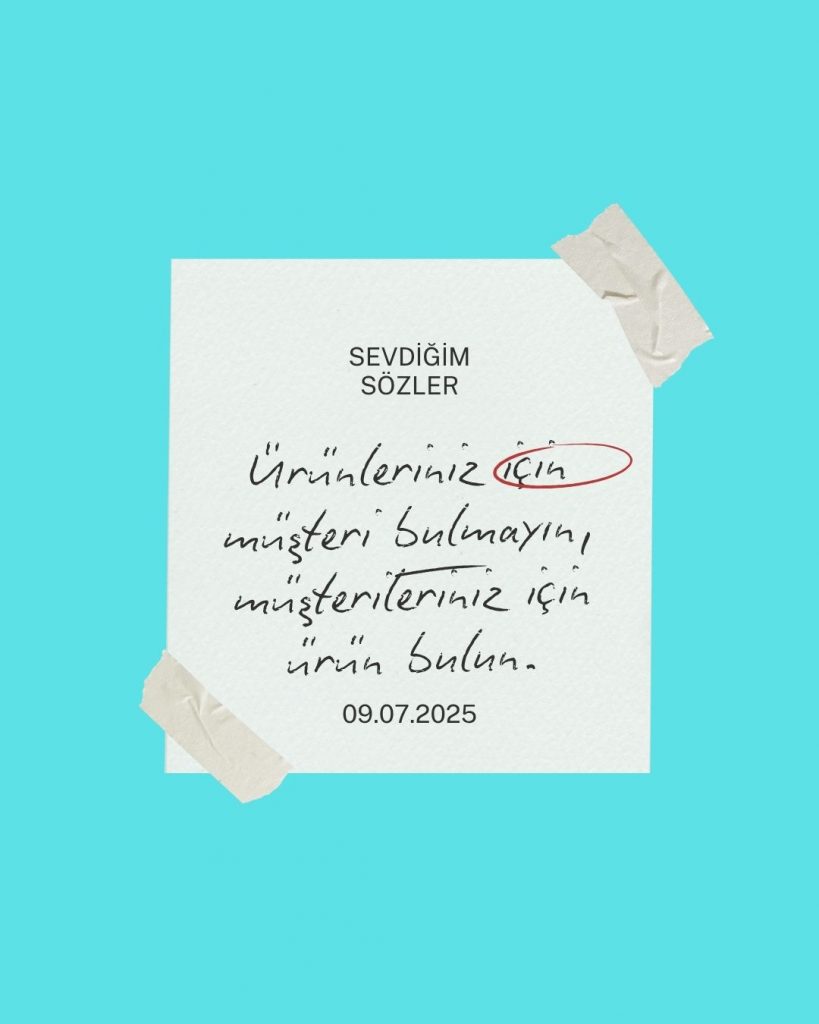 SEVDİĞİM
SÖZLER
Ürünleriniz için
müşteri bulmayın,
müşterileriniz için
ürün bulun.
09.07.2025